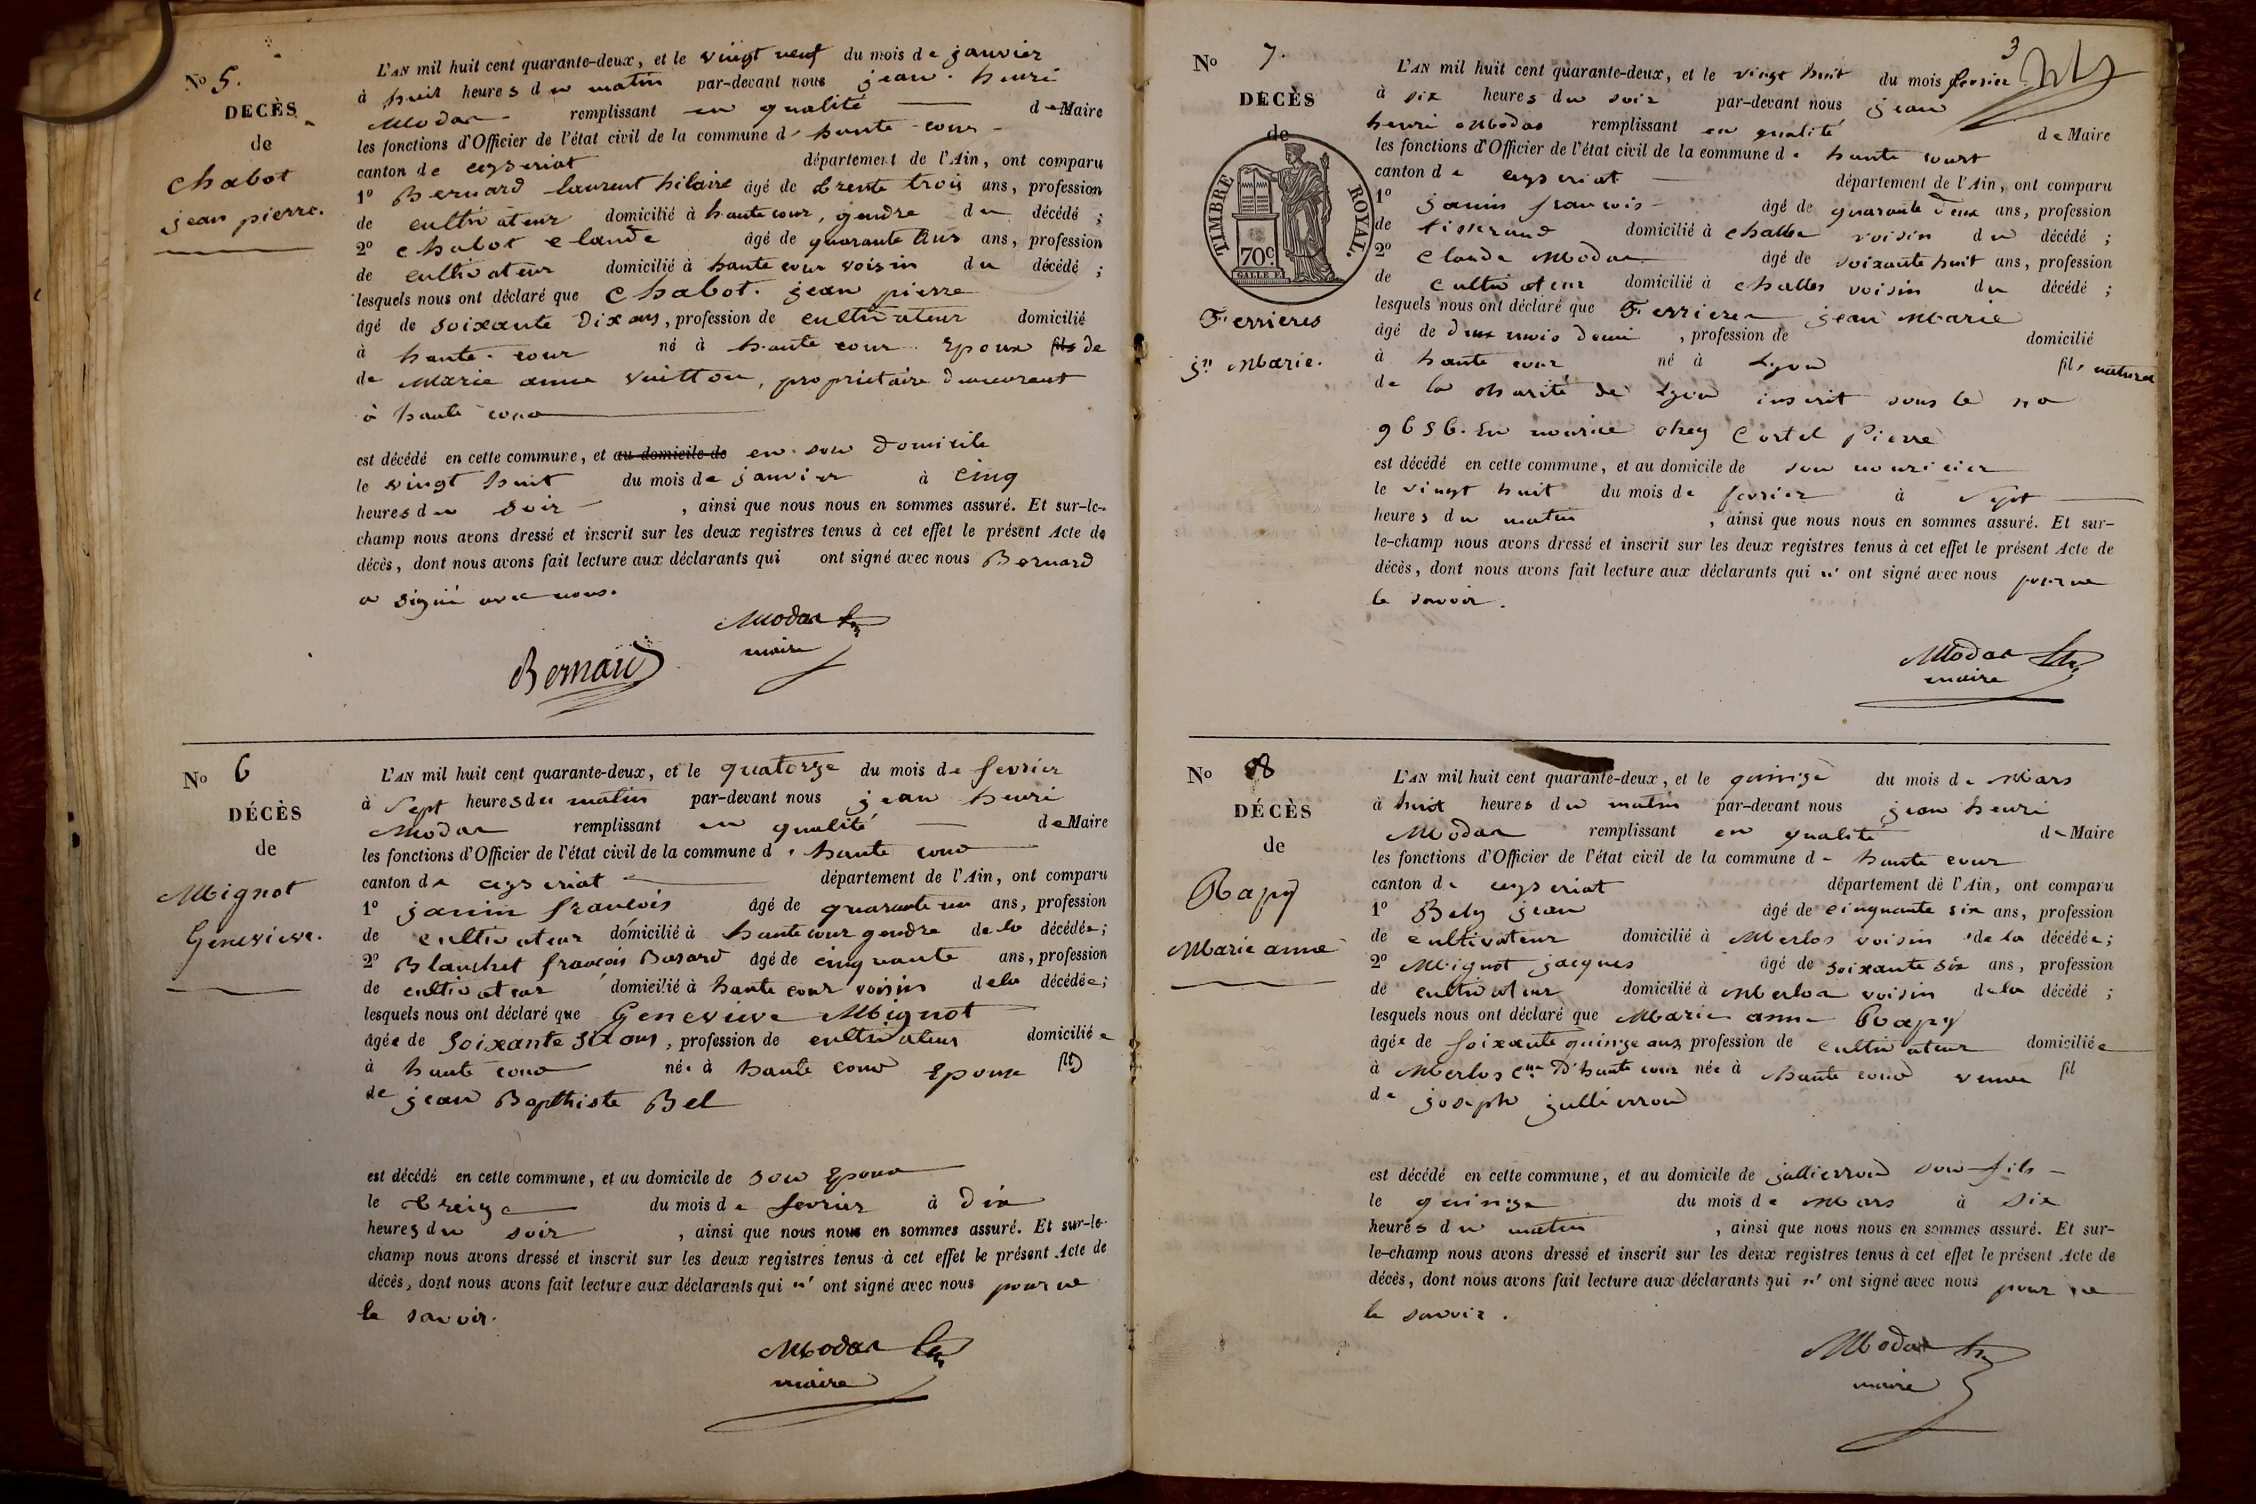 No 5.
DECÈS
de
Chabot
jean pierre.
L'AN mil huit cent quarante-deux, et le vingt neuf du mois de janvier
à huit heures du matin par-devant nous jean henri
Modas remplissant en qualité de Maire
les fonctions d'Officier de l'état civil de la commune d'haute cour
canton de ceyseriat département de l'Ain, ont comparu
1o Bernard laurent hilaire âgé de trente trois ans, profession
de cultivateur domicilié à haute cour, gendre du décédé ;
2o Chabot Claude âgé de quarante ans, profession
de cultivateur domicilié à haute cour voisin du décédé ;
lesquels nous ont déclaré que Chabot jean pierre
âgé de soixante Dix ans, profession de cultivateur domicilié
à haute cour né à haute cour Epoux fils de
de Marie anne Vuitton, proprietaire demeurent
à haute cour
est décédé en cette commune, et au domicile de en son Domicile
le vingt huit du mois de janvier à Cinq
heures du soir, ainsi que nous nous en sommes assuré. Et sur-le-
champ nous avons dressé et inscrit sur les deux registres tenus à cet effet le présent Acte de
décès, dont nous avons fait lecture aux déclarants qui ont signé avec nous Bernard
a signé avec nous.
Modas hri
maire
Bernard
No 6
DÉCÈS
de
Mignot
Genevieve.
L'AN mil huit cent quarante-deux, et le quatorze du mois de fevrier
à sept heures du matin par-devant nous jean henri
Modas remplissant en qualité de Maire
les fonctions d'Officier de l'état civil de la commune d'haute cour
canton de ceyseriat département de l'Ain, ont comparu
1o janin françois âgé de quarante un ans, profession
de cultivateur domicilié à haute cour gendre de la décédée ;
2o Blanchet françois Basard âgé de cinquante ans, profession
de cultivateur domicilié à haute cour voisin dela décédée ;
lesquels nous ont déclaré que Genevieve Mignot
âgée de soixante six ans, profession de cultivateur domiciliée
à haute cour née à haute cour Epouse fil
de jean Bapthiste Bel
est décédé en cette commune, et au domicile de son Epoux
le treize du mois de fevrier à Dix
heures du soir, ainsi que nous nous en sommes assuré. Et sur-le-
champ nous avons dressé et inscrit sur les deux registres tenus à cet effet le présent Acte de
décès, dont nous avons fait lecture aux déclarants qui n'ont signé avec nous pour ne
le savoir.
Modas hri
maire
3
No 7.
DECÈS
de
TIMBRE ROYAL.
70c.
Ferrieres
jn Marie.
L'AN mil huit cent quarante-deux, et le vingt huit du mois fevrier
à six heures du soir par-devant nous jean
henri Modas remplissant en qualité de Maire
les fonctions d'Officier de l'état civil de la commune d'haute court
canton de ceyseriat département de l'Ain, ont comparu
1o janin françois âgé de quarante deux ans, profession
de tisserand domicilié à Challes voisin du décédé ;
2o Claude Modas âgé de soixante huit ans, profession
de cultivateur domicilié à Challes voisin du décédé ;
lesquels nous ont déclaré que Ferrieres jean Marie
âgé de deux mois demi, profession de domicilié
à haute cour né à Lyon fils naturel
de la charité de Lyon inscrit sous le no
9656. En nourice chez Cortel Pierre
est décédé en cette commune, et au domicile de son nouricier
le vingt huit du mois de fevrier à sept
heures du matin, ainsi que nous nous en sommes assuré. Et sur-
le-champ nous avons dressé et inscrit sur les deux registres tenus à cet effet le présent Acte de
décès, dont nous avons fait lecture aux déclarants qui n'ont signé avec nous pour ne
le savoir.
Modas hri
maire
No 8
DÉCÈS
de
Rapy
Marie anne
L'AN mil huit cent quarante-deux, et le quinze du mois de Mars
à huit heures du matin par-devant nous jean henri
Modas remplissant en qualité de Maire
les fonctions d'Officier de l'état civil de la commune d'haute cour
canton de ceyseriat département de l'Ain, ont comparu
1o Bely jean âgé de cinquante six ans, profession
de cultivateur domicilié à Merlos voisin de la décédée ;
2o Mignot jacques âgé de soixante six ans, profession
de cultivateur domicilié à Merlos voisin dela décédé ;
lesquels nous ont déclaré que Marie anne Rapy
âgée de soixante quinze ans profession de cultivateur domiciliée
à Merlos cne D'haute cour née à haute cour veuve fil
de joseph jullierron
est décédé en cette commune, et au domicile de jullierron son fils
le quinze du mois de Mars à six
heures du matin, ainsi que nous nous en sommes assuré. Et sur-
le-champ nous avons dressé et inscrit sur les deux registres tenus à cet effet le présent Acte de
décès, dont nous avons fait lecture aux déclarants qui n'ont signé avec nous pour ne
le savoir.
Modas hri
maire